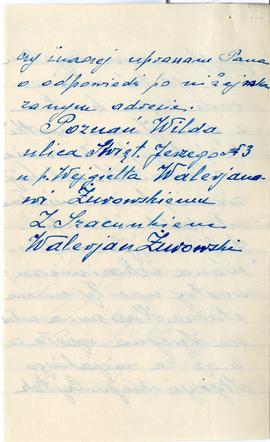 czy inaczej upraszam Pana
o odpowiedź po niżej wska
zanym adresie.
Poznań Wilda
ulica Swięt. Jerzego № 3
u p. Wejgielta Waleryano
wi Żurowskiemu
Z Szacunkiem
Waleryan Żurowski